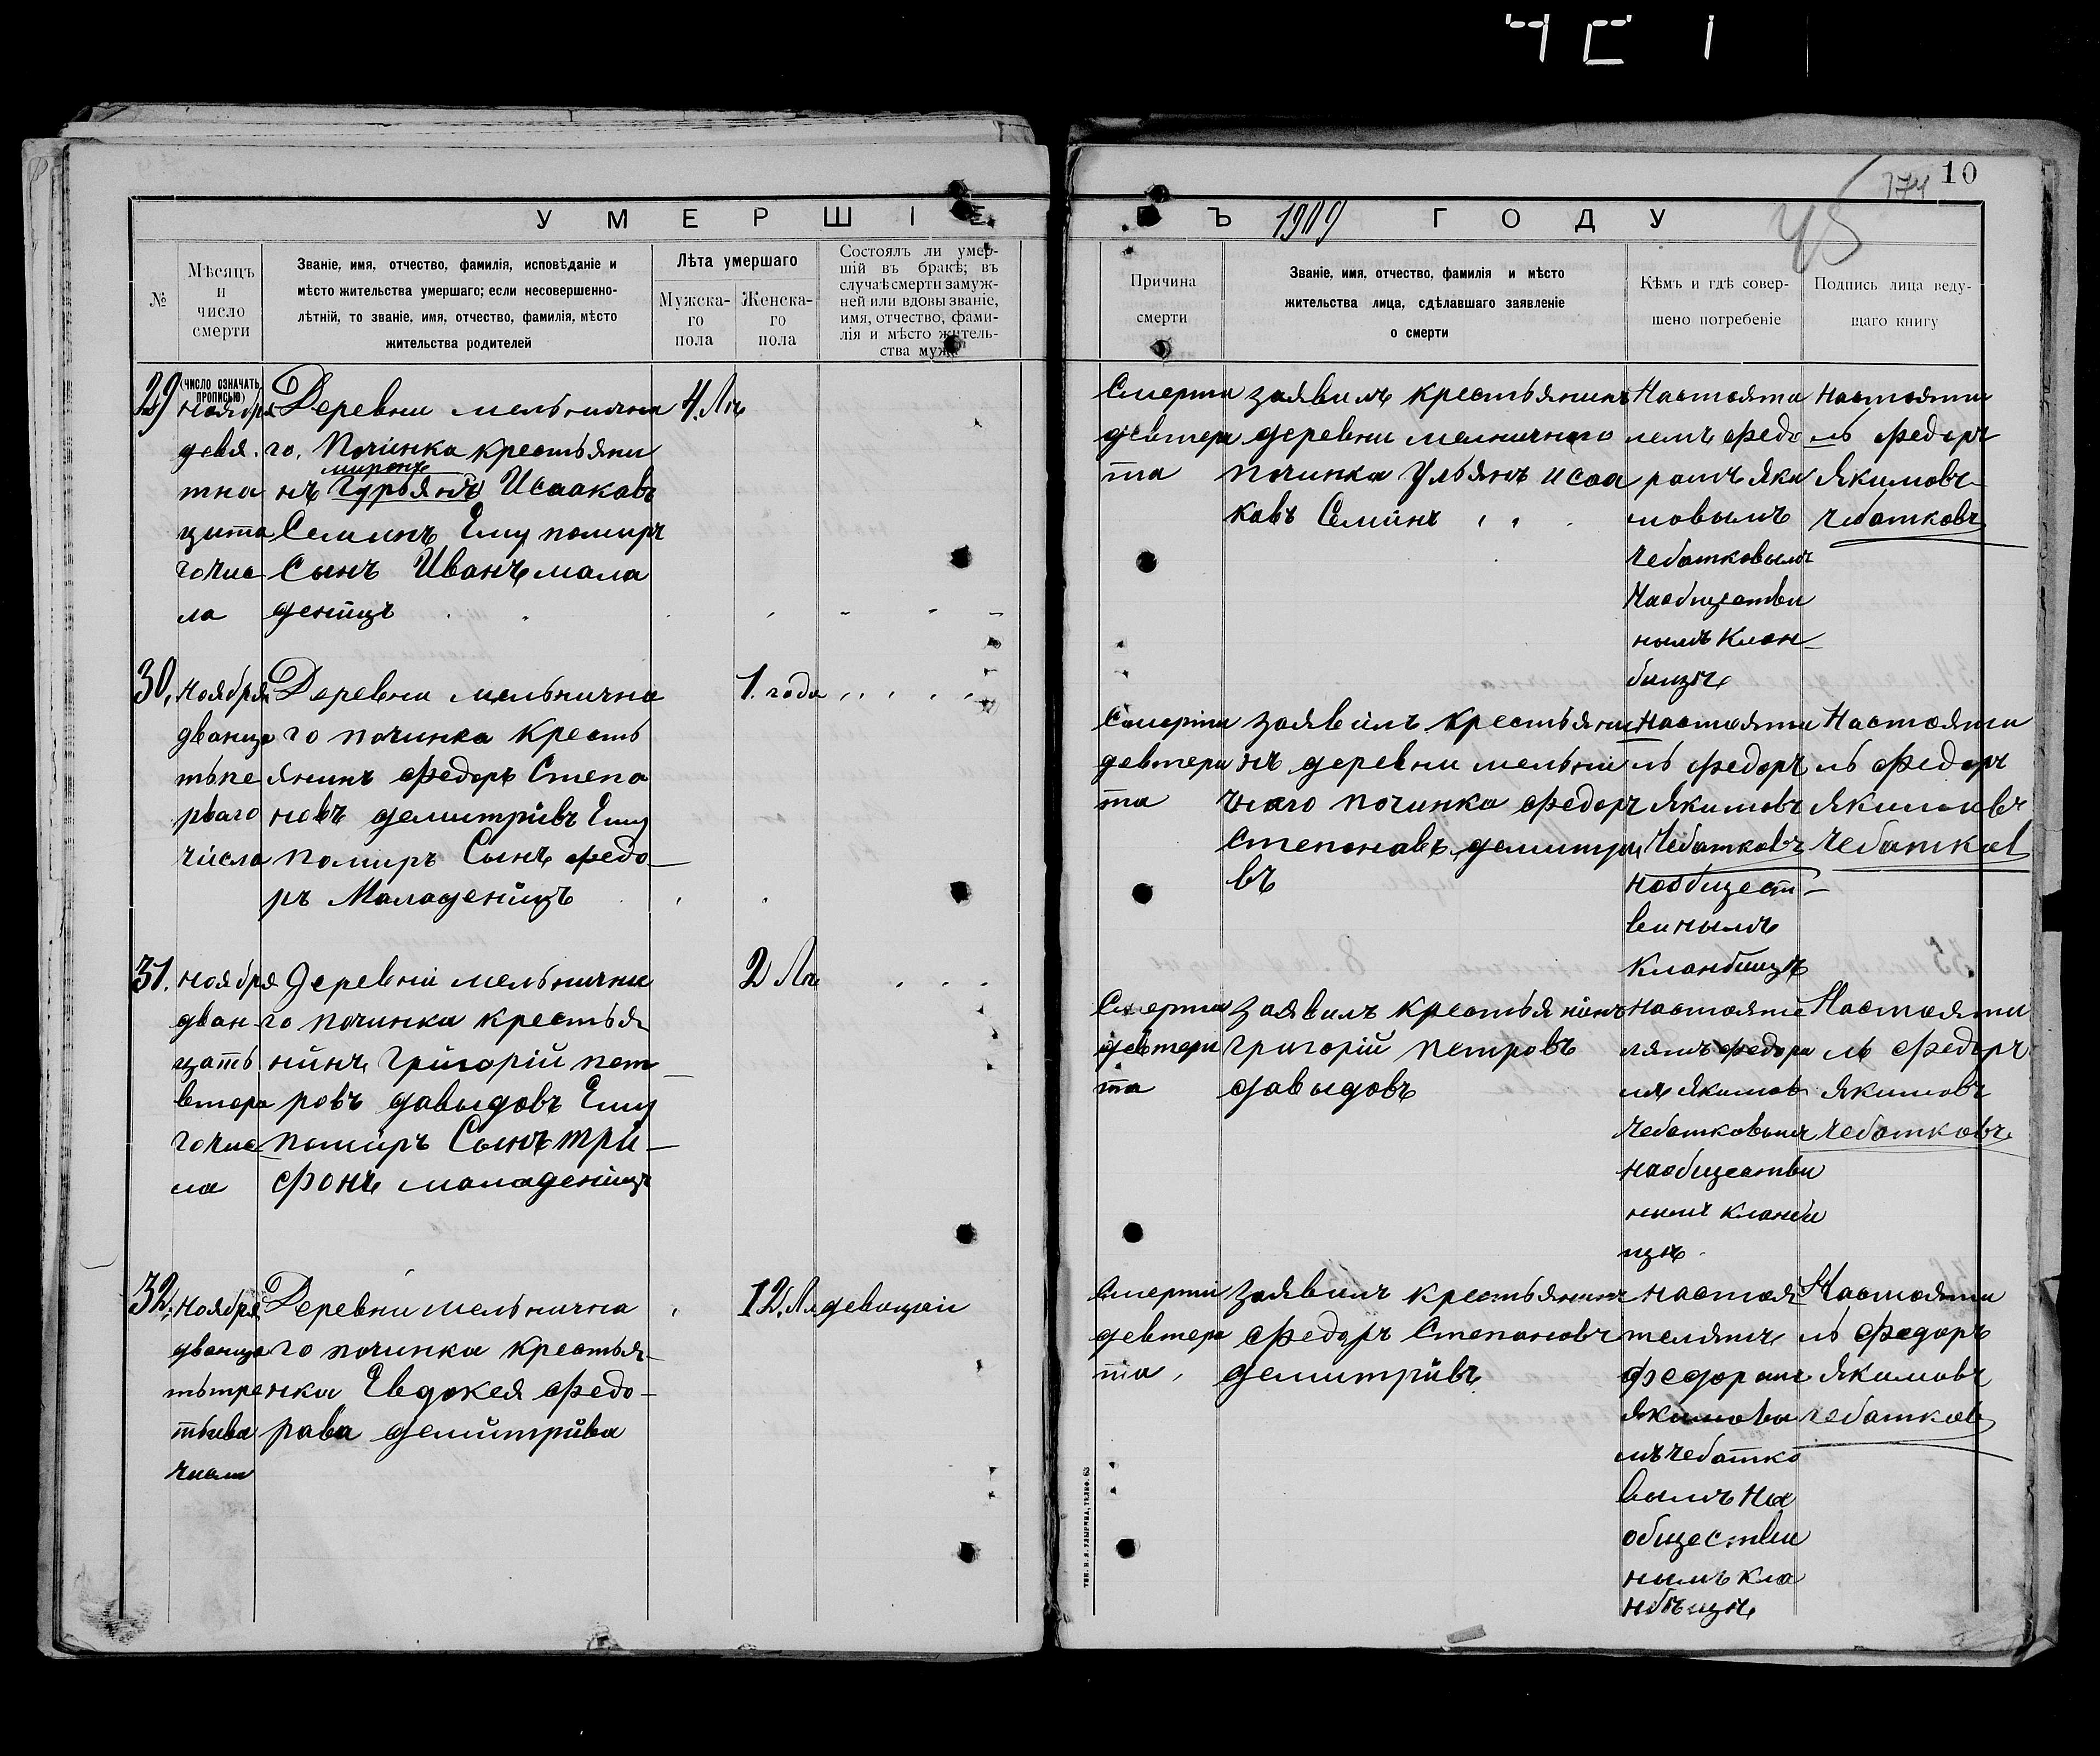 10
174
45
У М Е Р Ш І Е
В Ъ 1909 Г О Д У
№
Мѣсяцъ
и
число
смерти
Званіе, имя, отчество, фамилія, исповѣданіе и
мѣсто жительства умершаго; если несовершенно-
лѣтній, то званіе, имя, отчество, фамилія, мѣсто
жительства родителей
Лѣта умершаго
Мужска-
го
пола
Женска-
го
пола
Состоялъ ли умер-
шій въ бракѣ; въ
случаѣ смерти замуж-
ней или вдовы званіе,
имя, отчество, фами-
лія и мѣсто житель-
ства мужа
Причина
смерти
Званіе, имя, отчество, фамилія и мѣсто
жительства лица, сдѣлавшаго заявленіе
о смерти
Кѣмъ и гдѣ совер-
шено погребеніе
Подпись лица веду-
щаго книгу
(ЧИСЛО ОЗНАЧАТЬ
ПРОПИСЬЮ)
29
ноября
девя
тна
цата
го чис
ла
Деревни мельнична
го. Починка крестьяни
миронъ
нъ Гурьянъ Исааковъ
Семинъ Ему помиръ
Сынъ Иванъ мала
деницъ
4 Лѣ
Смерти
девтери
та
заявилъ крестьянинъ
деревни мелничного
починка Ульянъ исаа
ковъ Семинъ
Настояти
лемъ федо
ромъ яки
мовымъ
чебатковымъ
На общестьви
нымъ Клан
бищъ
Настояти
ль федоръ
Якимовъ
чебатковъ
30.
Ноября
дванца
тьпе
рваго
числа
Деревни мельнична
го починка Кресть
янинъ федоръ Степа
новъ демитривъ Ему
помиръ Сынъ федо
ръ Маладеницъ
1. года
Смерти
девтери
та
заявилъ крестьяни
нъ деревни мельни
чнаго починка федоръ
степановъ демитри
въ
настояти
ль федоръ
Якимовъ
Чебатковъ
наобщест
винымъ
кланбищъ
Настояти
ль федоръ
якимовъ
Чебатков
31.
ноября
дван
цать
втора
го чис
ла
Деревни мельнични
го починки крестья
нинъ григорій пет
ровъ давыдовъ Ему
помиръ Сынъ три
фонъ маладеницъ
2 Лѣ
Смерти
девтери
та
Заявилъ крестьянинъ
григорій петровъ
давыдовъ
настояте
лямъ федора
мъ якимов
чебатковымъ
наобщестьви
нымъ кланби
щъ
Настояти
ль федоръ
якимовъ
чебатковъ
32.
Ноября
дванца
тьтре
тьива
числа
Деревни мельнична
го починка крестья
нка Евдокея федо
рава демитрива
12. Лѣ
девицаи
Смерти
девтера
та
Заявилъ крестьянинъ
федоръ Степановъ
демитривъ
настоя
телямъ
федорамъ
якимова
мъ чебатко
вымъ на
обществи
нымъ кла
нбищъ
Настояти
ль федоръ
якимовъ
чебатковъ